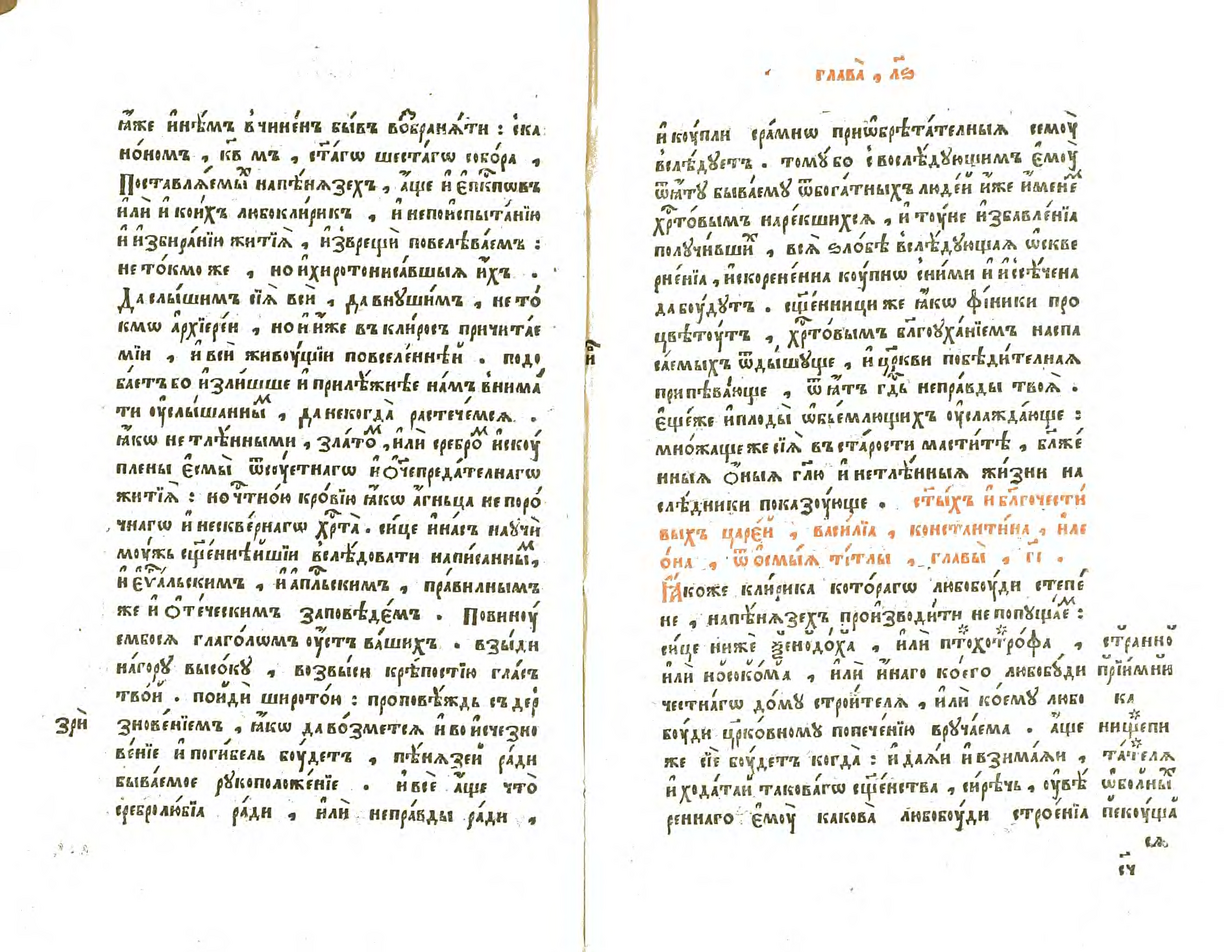 ꙗ҆́же и҆нѣ́мъ в҆чине́нъ бы́въ во҆браня́ти : с҆ка
но́номъ , кв҃ мъ , ст҃а́гѡ шеста́гѡ собо́ра ,
Поставлѧ́емыⷯ напѣ́нѧзехъ , а҆́ще и҆ є҆пⷭ҇кпѡвъ
и҆лѝ и҆ кои́хъ любоклири́къ , и҆ непоиспыта́нїю
и҆ и҆збира́нїю житїѧ̀ , и҆зврещѝ повелѣва́емъ :
не то́кмо же , но и҆ хиротониса́вшыѧ и҆̀хъ .
Да слы́шимъ сїѧ̀ всѝ , да внꙋши́мъ , не то́
кмѡ а҆рхїере́и , но и҆ и҆̀же въ кли́росъ причита́е
мїи , и҆ всѝ живоу́щїи повселе́ннѣй . подо
ба́етъ бо и҆зли́шше и҆ прилѣ́жнѣе на́мъ в҆нима́
ти оу҆слы́шанныⷨ , да некогда̀ растече́мсѧ .
ꙗ҆́кѡ не тлѣ́нными , зла́тоⷨ , и҆лѝ сребро́ⷨ и҆скоу́
плены є҆смы̀ ѿсоу́етнагѡ и҆ ѻ҆ч҃епреда́телнагѡ
житїѧ̀ : но чⷭ҇тно́ю кро́вїю ꙗ҆́кѡ а҆́гньца непоро́
чнагѡ и҆ нескве́рнагѡ хрⷭ҇та̀ . си́це и҆ на́съ наꙋчѝ
моу́жъ сщ҃е́ннѣйшїи вслѣ́довати напи́санныⷨ ,
и҆ є҆ѵⷢ҇а́льскимъ , и҆ а҆пⷭ҇льскимъ , пра́вилнымъ
же и҆ ѻ҆те́ческимъ заповѣде́мъ . Повиноу́
емъбосѧ глаго́лѡмъ оу҆́стъ ва́шихъ . взы́ди
на́горꙋ высо́кꙋ , возвы́си крѣ́постїю гла́съ
тво́й . поиди широто́ю : проповѣ́ждь съ дер
знове́нїемъ , ꙗ҆́кѡ да во́зметсѧ и҆ во и҆счезно
ве́нїе и҆ поги́бель боу́детъ , пѣ́нѧзей ра́ди
быва́емое рꙋкоположе́нїе . и҆ всѐ а҆́ще что̀
сребролю́бїа ра́ди , и҆лѝ непра́вды ра́ди ,
зрѝ
глава̀ , л҃ѕ
и҆ коу́пли сра́мнѡ приѡбрѣта́телныѧ семоу̀
в҆слѣ́дꙋетъ . томꙋ̀ бо с҆ вослѣ́дꙋющимъ є҆моу̀
ѿѧ́тꙋ быва́емꙋ ѿбога́тныхъ люде́й и҆̀же и҆мене́ⷨ
хрⷭ҇то́вымъ наре́кшихсѧ , и҆ тоу́не и҆збавле́нїа
полꙋчи́вшиⷯ , всѧ̀ ѕло́бѣ в҆слѣ́дꙋющаѧ ѡ҆скве
рне́нїа , и҆скорене́нна коу́пнѡ с҆ни́ми и҆ и҆сѣ́чена
да боу́дꙋтъ . сщ҃е́нници же ꙗ҆́кѡ фі́ники про
цвѣтоу́тъ , хрⷭ҇то́вымъ бл҃гоꙋха́нїемъ наспа
са́емыхъ ѿды́шꙋще , и҆ цр҃кви побѣди́телнаѧ
припѣва́юще , ѿѧ́тъ гдⷭ҇ь непра́вды твоѧ̀ .
є҆щѐже и҆ плоды̀ ѡ҆б̾е́млющихъ оу҆слажда́юще :
мно́жаще же сїѧ̀ въ ста́рости масти́тѣ , бл҃же́
нныѧ ѻ҆́ныѧ гл҃ю и҆ нетлѣ́нныѧ жи́зни на
слѣ́дники показоу́юще . ст҃ы́хъ и҆ бл҃гочести́
выхъ царе́й , васи́лїа , константи́на , и҆ ле
о́на , ѿ ѻ҆смы́ѧ ті́тлы , главы̀ , г҃і .
Ꙗ҆́коже кли́рика кото́рагѡ любобоу́ди степе́
не , напѣ́нѧзехъ произво́дити не попꙋща́еⷨ :
си́це ниже ѯенодо́ха , и҆лѝ птохотро́фа ,
и҆лѝ носоко́ма , и҆лѝ и҆́наго ко́его любобꙋ́ди
честна́гѡ до́мꙋ строи́телѧ , и҆лѝ ко́емꙋ любо
боу́ди цр҃ко́вномꙋ попече́нїю врꙋча́ема . а҆́ще
же сїѐ боу́детъ когда̀ : и҆ даѧ́и и҆ взима́ѧи ,
и҆ хода́тай такова́гѡ сщ҃е́нства , си́рѣчь , оу҆вѣ́
реннаго є҆моу̀ какова̀ любобоу́ди строе́нїа
стра́нно
прїи́мни
ка
ни́щепи
та́телѧ
ѡ҆больны́ⷯ
пекоу́ща
сѧ